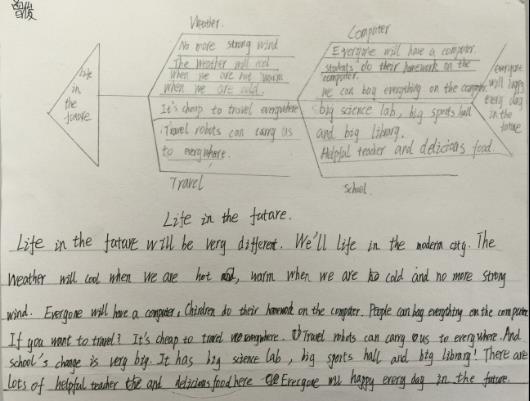 Weather
No more strong wind
The weather will cool
when we are hot warm
when we are cold.
It's cheap to travel everywhere
Travel robots can carry us
to everywhere.
Travel
Life
in
the
future
Computer
Everyone will have a computer.
students do their homework on the
computer.
we can bag everything on the computer
big science lab, big sports hall
and big library.
Helpful teacher and delicious food.
School
everyone
will happy
every day
in the
future
Life in the future.
Life in the future will be very different. We'll life in the modern city. The
weather will cool when we are hot, warm when we are cold and no more strong
wind. Everyone will have a computer, Chirdren do their homework on the computer. People can bag everything on the computer
If you want to travel? It's cheap to travel everywhere. Travel robots can carry us to everywhere. And
school's change is very big. It has big science lab, big sports hall and big library! There are
lots of helpful teacher and delicious food here Everyone will happy every day in the future.